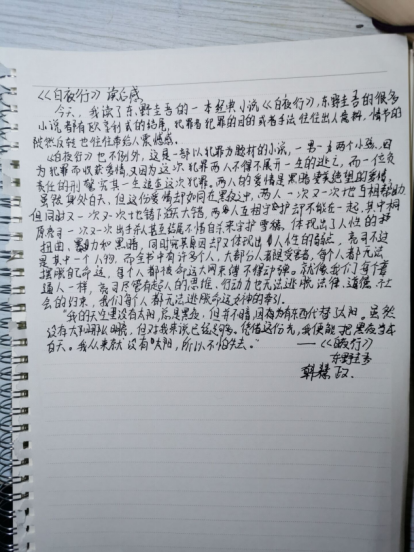 《白夜行》读后感
今天，我读了东野圭吾的一本经典小说《白夜行》，东野圭吾的很多
小说都有欧亨利式的结尾，犯罪者犯罪的目的或者手法往往出人意料，情节的
陡然反转也往往带给人震撼感。
《白夜行》也不例外，这是一部以犯罪为题材的小说，一男一女两个小孩，因
为犯罪而收获爱情，又因为这次犯罪两人不得不展开一生的逃亡，而一位负
责任的刑警穷其一生追查这次犯罪。两人的爱情是黑暗绝望的爱情，
虽然身处白天，但这份爱情却如同在黑夜中，两人一次又一次地互相帮助
但同时又一次又一次地错下弥天大错，两人互相守护却不能在一起，其中桐
原亮司一次又一次出手杀人甚至结尾不惜自杀来守护雪穗，体现出了人性的
扭曲、暴力和黑暗，同时究其原因却又体现出了人性的弱点，亮司不过
是其中一个人物，而全书中有许多个人，大部分人都是受害者，每个人都无法
摆脱的命运，每个人都被命运大网束缚不得动弹。就像我们每个普
通人一样，亮司尽管有超人的思维，行动力也无法逃脱法律、道德、社
会的约束，我们每个人都无法逃脱命运女神的牵引。
“我的天空里没有太阳，总是黑夜，但并不暗，因为有东西代替太阳。虽然
没有太阳那么明亮，但对我来说已经足够。凭借这份光，我便能把黑夜当成
白天。我从来就没有太阳，所以不怕失去。”——《白夜行》
东野圭吾